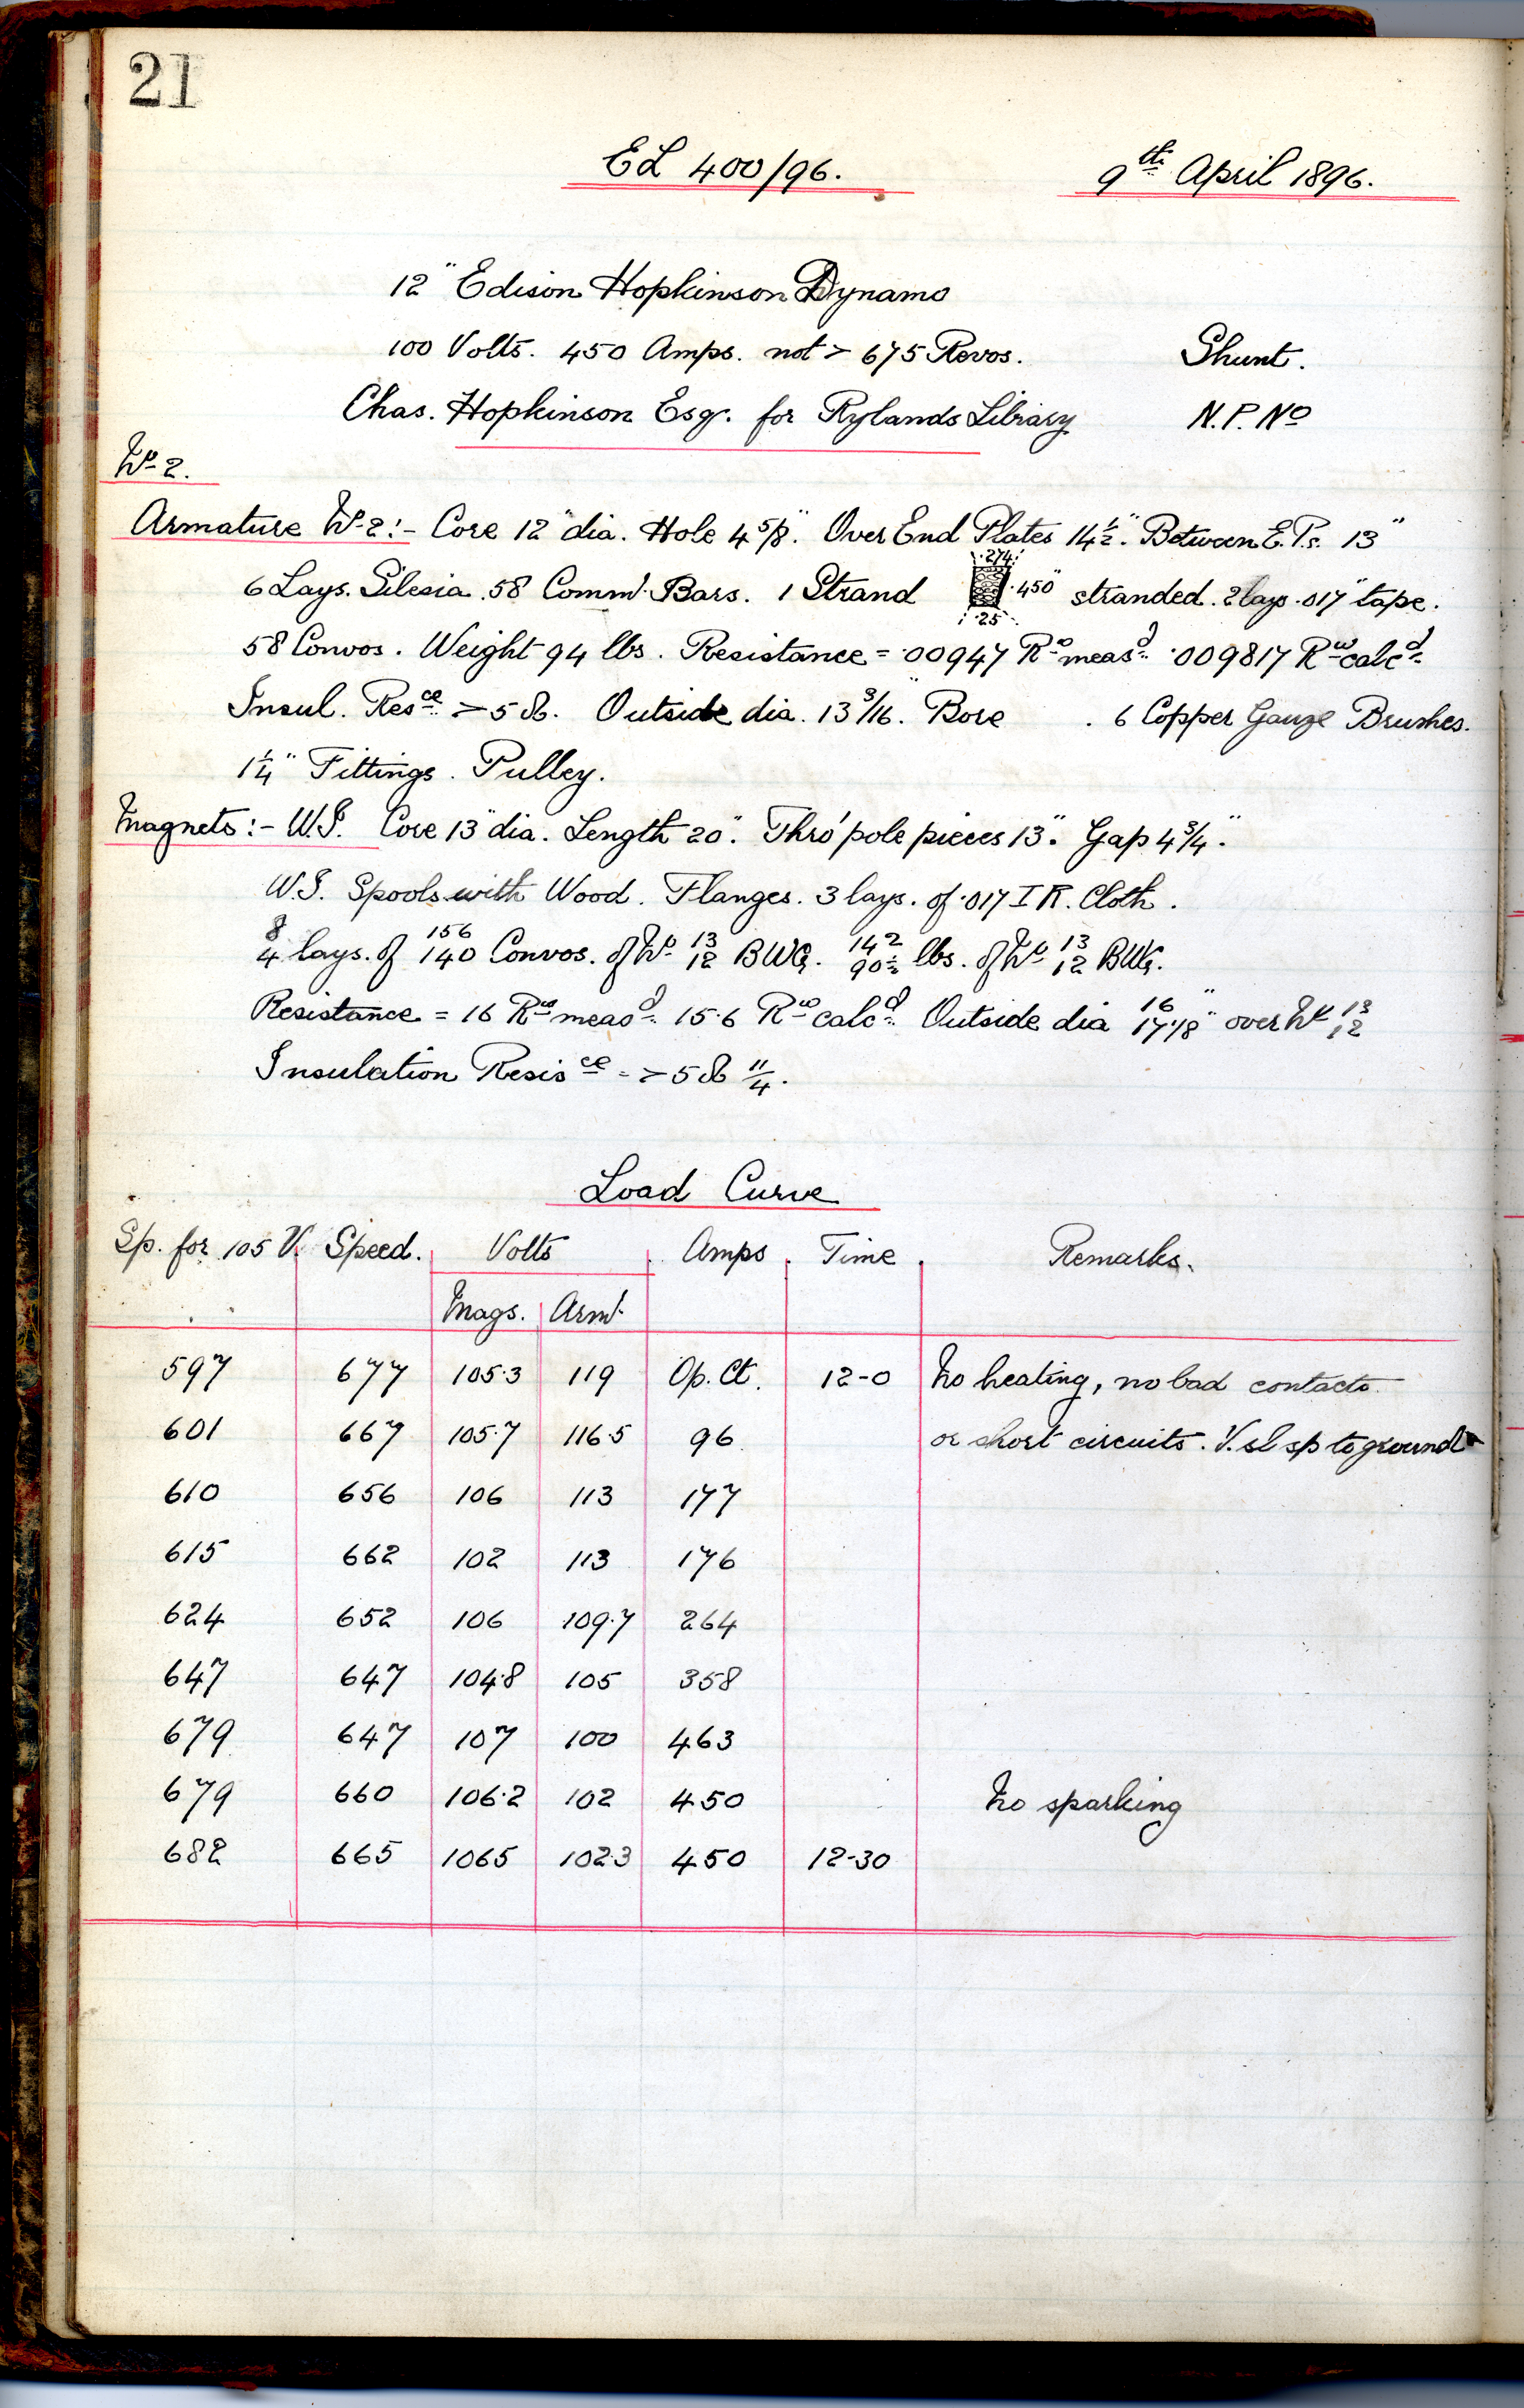 21
EL 400/96. 9th April 1896.
12" Edison Hopkinson Dynamo
100 Volts. 450 Amps. not > 675 Revos. Shunt.
Chas. Hopkinson Esq. for Rylands Library N.P. No
No 2.
Armature No 2:- Core 12" dia. Hole 4 5/8". Over End Plates 14 1/2". Between E.Ps. 13"
.274
6 Lays. Silesia. 58 Commr. Bars. 1 Strand .450" stranded. 2 lays .017" tape.
.25
58 Convos. Weight 94 lbs. Resistance = .00947 Rw measd. .009817 Rw calcd.
Insul. Resce > 5 Ω. Outside dia. 13 3/16". Bore . 6 Copper Gauze Brushes.
1 1/4" Fittings. Pulley.
Magnets:- W.I. Core 13" dia. Length 20". Thro' pole pieces 13". Gap 4 3/4".
W.I. Spools with Wood. Flanges. 3 lays. of .017 I R. Cloth.
8 156 13 142 13
4 lays. of 140 Convos. of No 12 BWG. 90 lbs. of No 12 BWG.
16" 13
Resistance = 16 Rw measd. 15.6 Rw calcd. Outside dia 17 1/8" over No 12
Insulation Resisce = > 5 Ω 11/4.
Load Curve
Sp. for 105 V. Speed. Volts Amps Time Remarks.
Mags. Armr.
597 677 105.3 119 Op. Ct. 12-0 No heating, no bad contacts
601 667 105.7 116.5 96 or short circuits. V. sl sp to ground
610 656 106 113 177
615 662 102 113 176
624 652 106 109.7 264
647 647 104.8 105 358
679 647 107 100 463
679 660 106.2 102 450 No sparking
682 665 1065 102.3 450 12-30